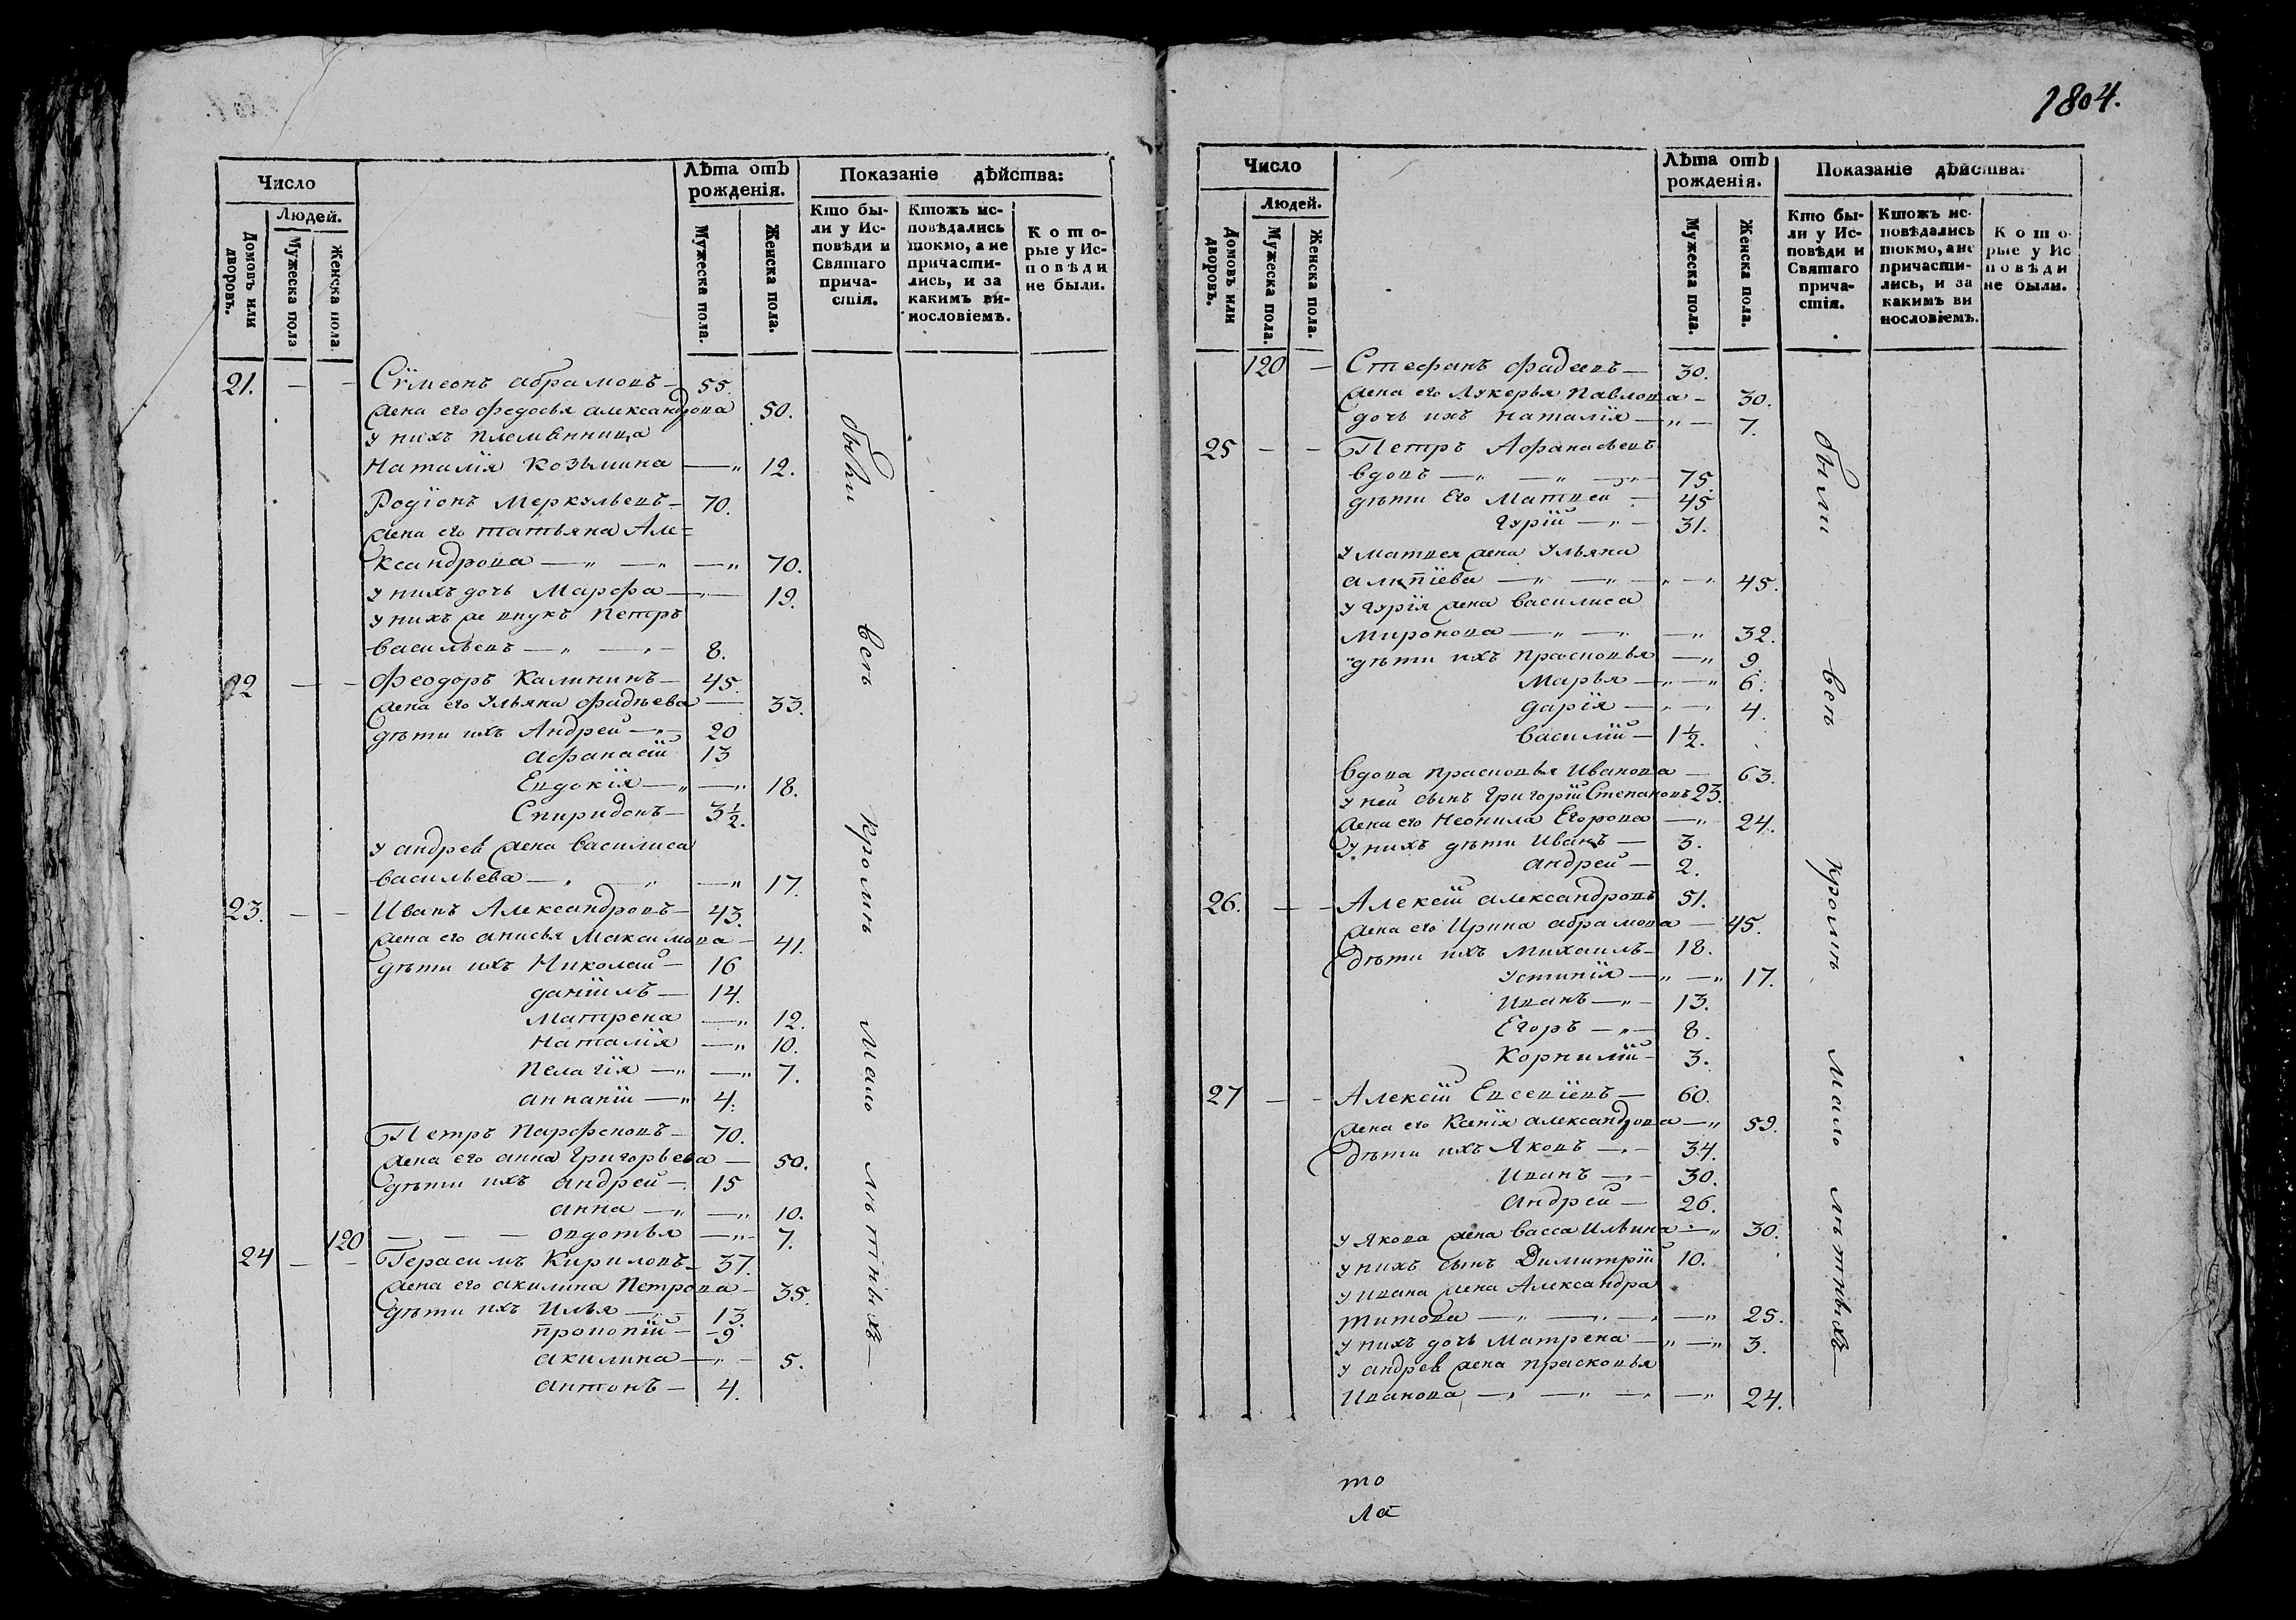 Число
Людей.
Домовъ или дворовъ.
Мужеска пола
Женска пола.
Лѣта отъ рожденія.
Мужеска пола.
Женска пола.
Показаніе дѣйства:
Кто бы-
ли у Ис-
повѣди и
Святаго
прича-
стія.
Ктожъ ис-
повѣдались
токмо, а не
причасти-
лись, и за
какимъ ви-
нословіемъ.
Кото-
рые у Ис-
повѣди
не были.
21. — — Сѵмеонъ абрамовъ — 55.
жена его федосья александрова 50.
у нихъ племѣнница
Наталія Козьмина — 12.
Родіонъ Меркульевъ — 70.
жена его татьяна Але=
ксандрова — " — " — " 70.
у нихъ дочь Марфа — " — 19.
у нихъ же внукъ Петръ
васильевъ — " — " — 8.
22 — — Феодоръ Калининъ — 45.
жена его Ульяна фадѣева — 33.
дѣти ихъ Андрей — " — 20
афанасій 13
Евдокія — " — " 18.
Спиридонъ — 3 1/2.
у андрея жена василиса
васильева — " — " — " 17.
23. — — Иванъ Александровъ — 43.
жена его анисья Максимова — 41.
дѣти ихъ Николай — 16
даніилъ — 14.
Матрена — " 12.
Наталія — " 10.
Пелагія — " — " 7.
ананій — " 4.
Петръ Парфеновъ — 70.
жена его анна Григорьева — 50.
дѣти ихъ андрей — 15
анна — " — " 10.
120 — — — овдотья — " — 7.
24 — — Герасимъ Кириловъ — 37.
жена его акилина Петрова — 35.
дѣти ихъ Илья — " — 13.
прокопій — 9
акилина — " — 5.
антонъ — 4.
были всѣ кромѣ мало лѣтныхъ —
1804.
Число
Людей.
Домовъ или дворовъ.
Мужеска пола.
Женска пола.
Лѣта отъ рожденія.
Мужеска пола.
Женска пола.
Показаніе дѣйства:
Кто бы-
ли у Ис-
повѣди и
Святаго
прича-
стія.
Ктожъ ис-
повѣдались
токмо, а не
причасти-
лись, и за
какимъ ви
нословіемъ.
Кото-
рые у Ис
повѣди
не были.
120 — Стефанъ фадеевъ — 30.
жена его Лукерья Павлова — 30.
дочь ихъ наталія — " — 7.
25 — — Петръ Афанасьевъ
вдовъ — " — " — " — 75.
дѣти Его Матвей — 45
гурій — " — 31.
у матвея жена Ульяна
алипіева — " — " — " — " 45.
у гурія жена василиса
миронова — " — " — " 32.
дѣти ихъ прасковья — " 9.
Марья — " — " 6.
дарія — " — " 4.
василій — 1 1/2.
вдова прасковья Иванова — 63.
у ней сынъ григорій Степановъ 23.
жена его Неонила Егорова — " 24.
у нихъ дѣти Иванъ — 3.
андрей — 2.
26. — — Алексій александровъ 51.
жена его Ирина абрамова — 45.
дѣти ихъ михаилъ — 18.
устинія — " — " 17.
иванъ — " — 13.
Егоръ — " — 8.
корнилій — 3.
27 — — Алексій Евсевіевъ — 60.
жена его Ксенія александрова — " 59.
дѣти ихъ Яковъ — " — 34.
иванъ — " — 30.
андрей — 26.
у якова жена васса Ильина — " 30.
у нихъ сынъ Димитрій 10.
у ивана жена Александра
титова — " — " — " — " 25.
у нихъ дочь матрена — " — " 3.
у андрея жена прасковья
Иванова — " — " — " — " 24.
были всѣ кромѣ мало лѣтныхъ —
то
ла